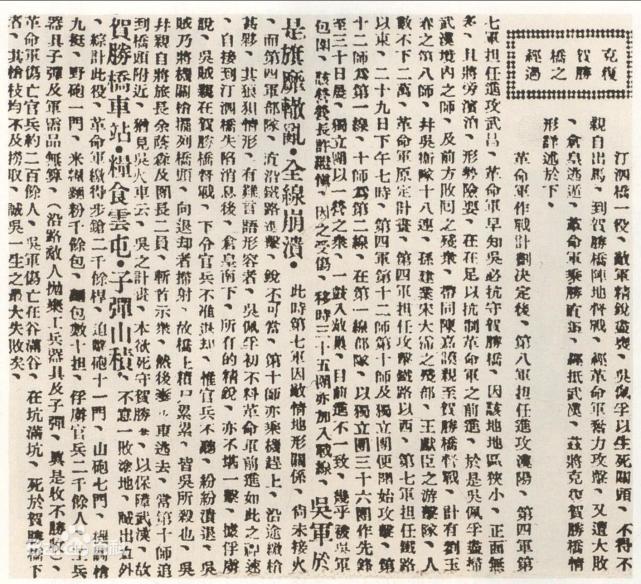 克復賀勝橋之經過
汀泗橋一役，敵軍精銳盡喪，吳佩孚以生死關頭，不得不
親自出馬，到賀勝橋陣地督戰，經革命軍奮力攻擊，又遭大敗
，倉皇逃遁，革命軍乘勝直追，經抵武漢，茲將克復賀勝橋情
形詳述於下。
革命軍作戰計劃決定後，第八軍担任進攻漢陽，第四軍第
七軍担任進攻武昌，革命軍早知吳必抗守賀勝橋，因該地地區狹小，正面無
多，且將旁濱湖，形勢險要，在在足以抗制革命軍之前進，於是吳佩孚盡掃
武漢境內之師，及前方敗囘之殘衆，帶同陳嘉謨親至賀勝橋督戰，計有劉玉
春之第八師，幷吳衛隊十八連，孫建業宋大霈之殘部，王獻臣之游擊隊，人
數不下二萬，革命軍原定計畫，第四軍担任攻擊鐵路以西，第七軍担任鐵路
以東，二十九日下午七時，第四軍第十二師第十師及獨立團便開始攻擊，第
十二師爲第一線，十師爲第二線，在第一線部隊，以獨立團三十六團作先鋒
至三十日晨，獨立團以一營之衆，一鼓入敵，目前進不一致，幾乎被吳軍
包圍，該營營長許繼慎，因之受傷，移時三十五團亦加入戰線，吳軍於
是旗靡轍亂，全線崩潰，此時第七軍因敵情地形關係，尚未接火
，而第四軍部隊，直沿鐵路進擊，銳不可當，第十師亦乘機趕上，沿途繳槍
甚夥，其狼狽情形，有難言語形容者，吳佩孚初不料革命軍前進如此之神速
，自接到汀泗橋失陷消息後，倉皇南下，所有的精銳，亦不堪一擊，據俘虜
說，吳賊親在賀勝橋督戰，下令官兵不准退却，惟官兵不聽，紛紛潰退，吳
賊乃將機關槍擺列橋頭，向退却者掃射，故橋上積尸累累，皆吳所殺也，吳
幷親自將旅長余蔭森及團長二員，斬首示衆，然後乘車逃去，當第十師追
到橋頭附近，猶見吳火車云，吳之計畫，本欲死守賀勝，以保障武漢，故
賀勝橋車站，糧食雲屯，子彈山積，不意一敗塗地，賊出意外
，綜計此役，革命軍繳得步鎗二千餘桿，追擊砲十一門，山砲七門，機關槍
九挺，野砲一門，米糧麵粉千餘包，麵包數十担，俘虜官兵二千餘，工兵
器具子彈及軍需品無算，（沿路敵人拋棄工兵器具及子彈，真是收不勝收
革命軍傷亡官兵約二百餘人，吳軍傷亡在谷滿谷，在坑滿坑，死於賀勝橋下
者，其槍枝均不及撈取，誠吳一生之最大失敗矣。